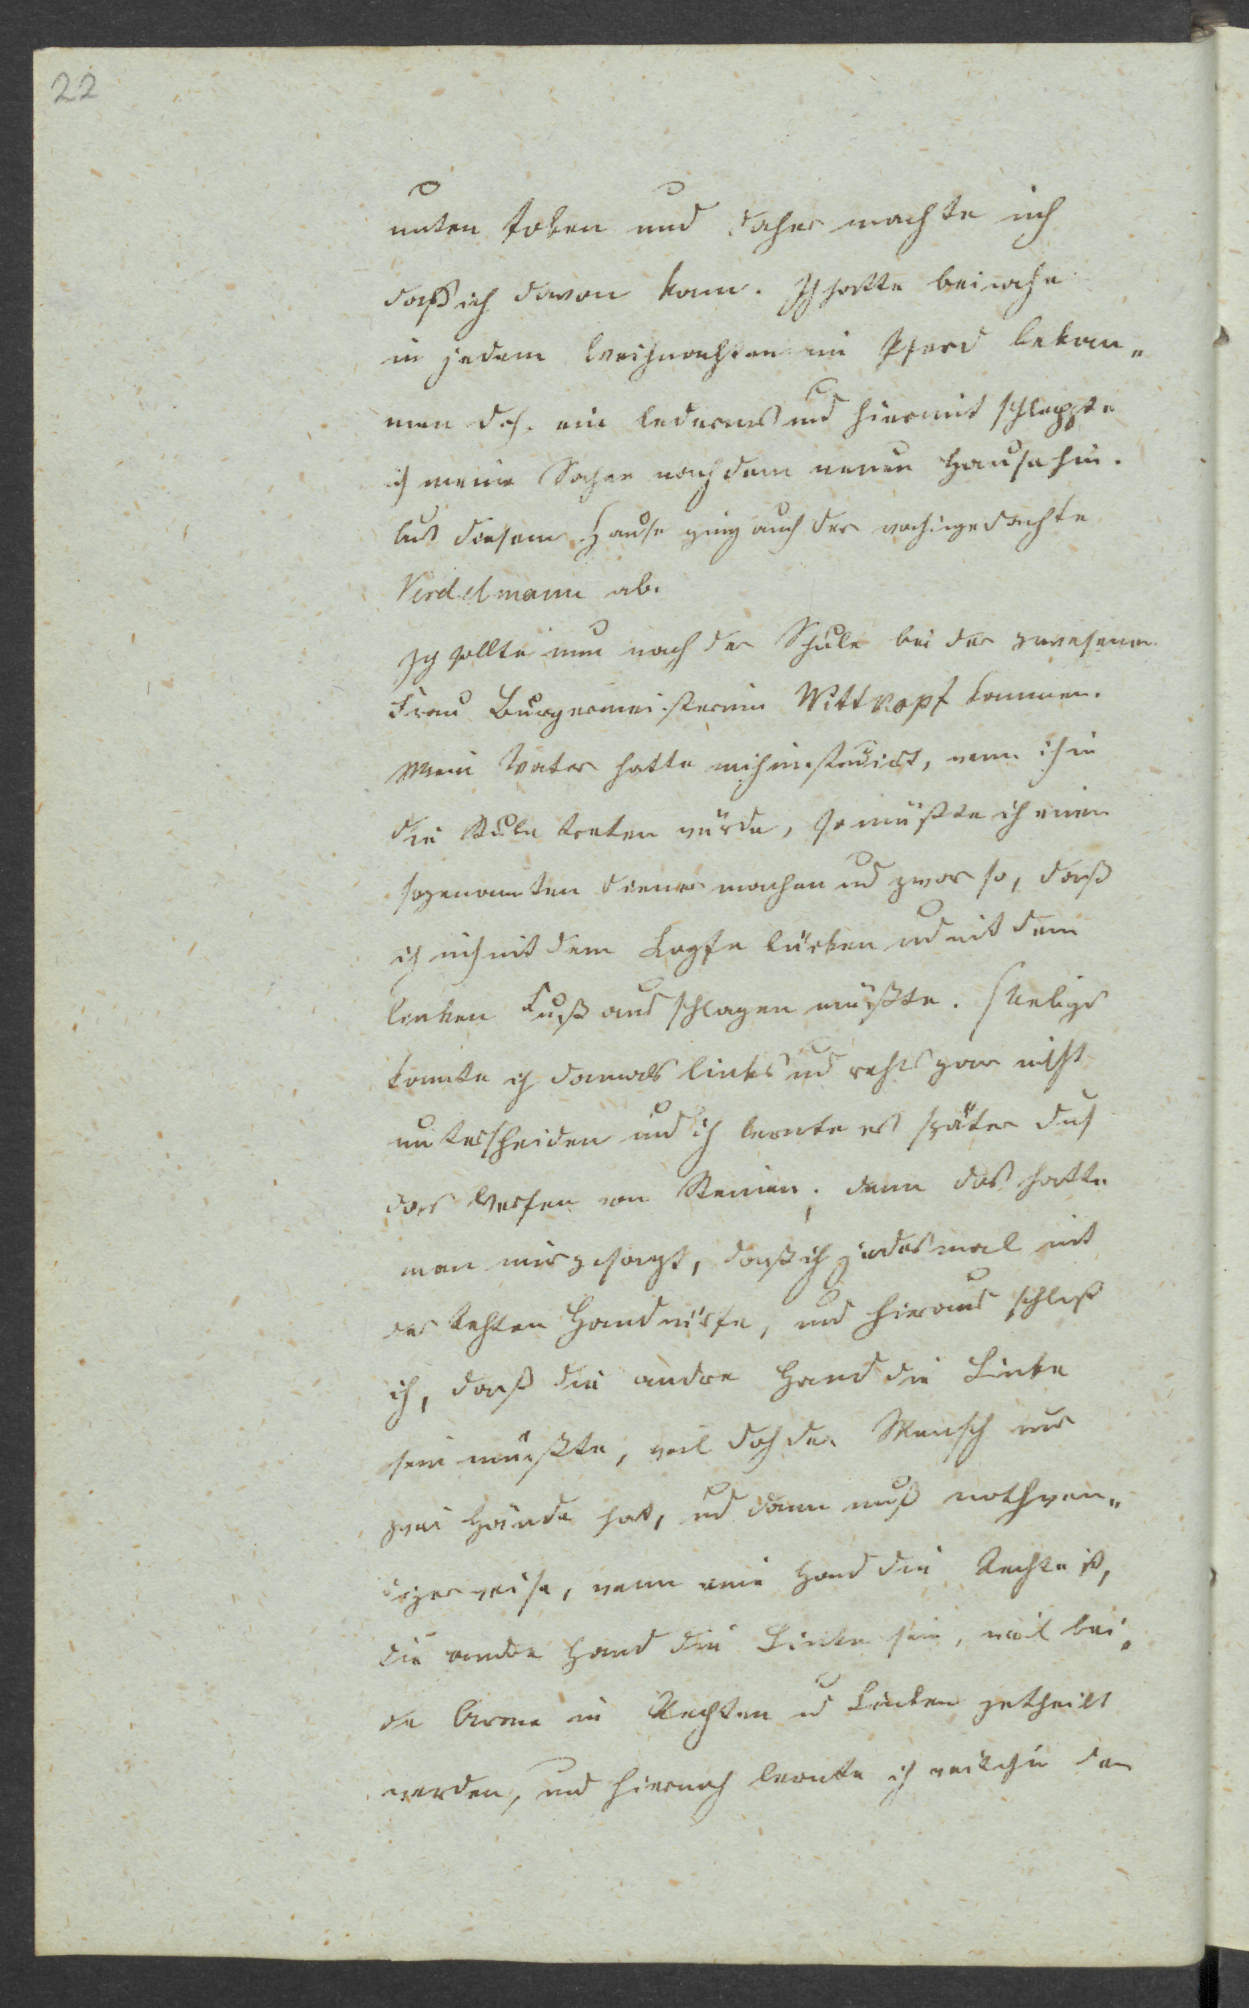 22
unten toben und daher machte ich
daß ich davon kam. Ich hatte beinahe
in jedem Weihnachten ein Pferd bekom„
men d.h. ein ledernes und hiermit schleppte
ich meine Sachen nach dem neuen Hause hin.
Aus diesem Hause ging auch der vorhingedachte
Verdelmann ab.
Ich sollte nun nach der Schule bei der gewesenen
Frau Burgermeisterin Wittkopf kommen.
Mein Vater hatte mich instruirt, wenn ich in
die Stube treten würde, so müßte ich einen
sogenannten Diener machen und zwar so, daß
ich mich mit dem Kopfe bücken und mit dem
linken Fuß aus schlagen müßte. Übrigs
konnte ich damals links und rechts gar nicht
unterscheiden und ich lernte es später durch
das Werfen von Steinen; denn das hatte
man mir gesagt, daß ich jedesmal mit
der rechten Hand würfe, und hieraus schloß
ich, daß die andre Hand die Linke
sein müßte, weil doch der Mensch nur
zwei Hände hat, und dann muß nothwen„
digerweise, wenn eine Hand die Rechte ist,
die andre Hand die Linke sein, weil bei„
de Arme in Rechten und Linken getheilt
werden, und hiernach lernte ich weiterhin den